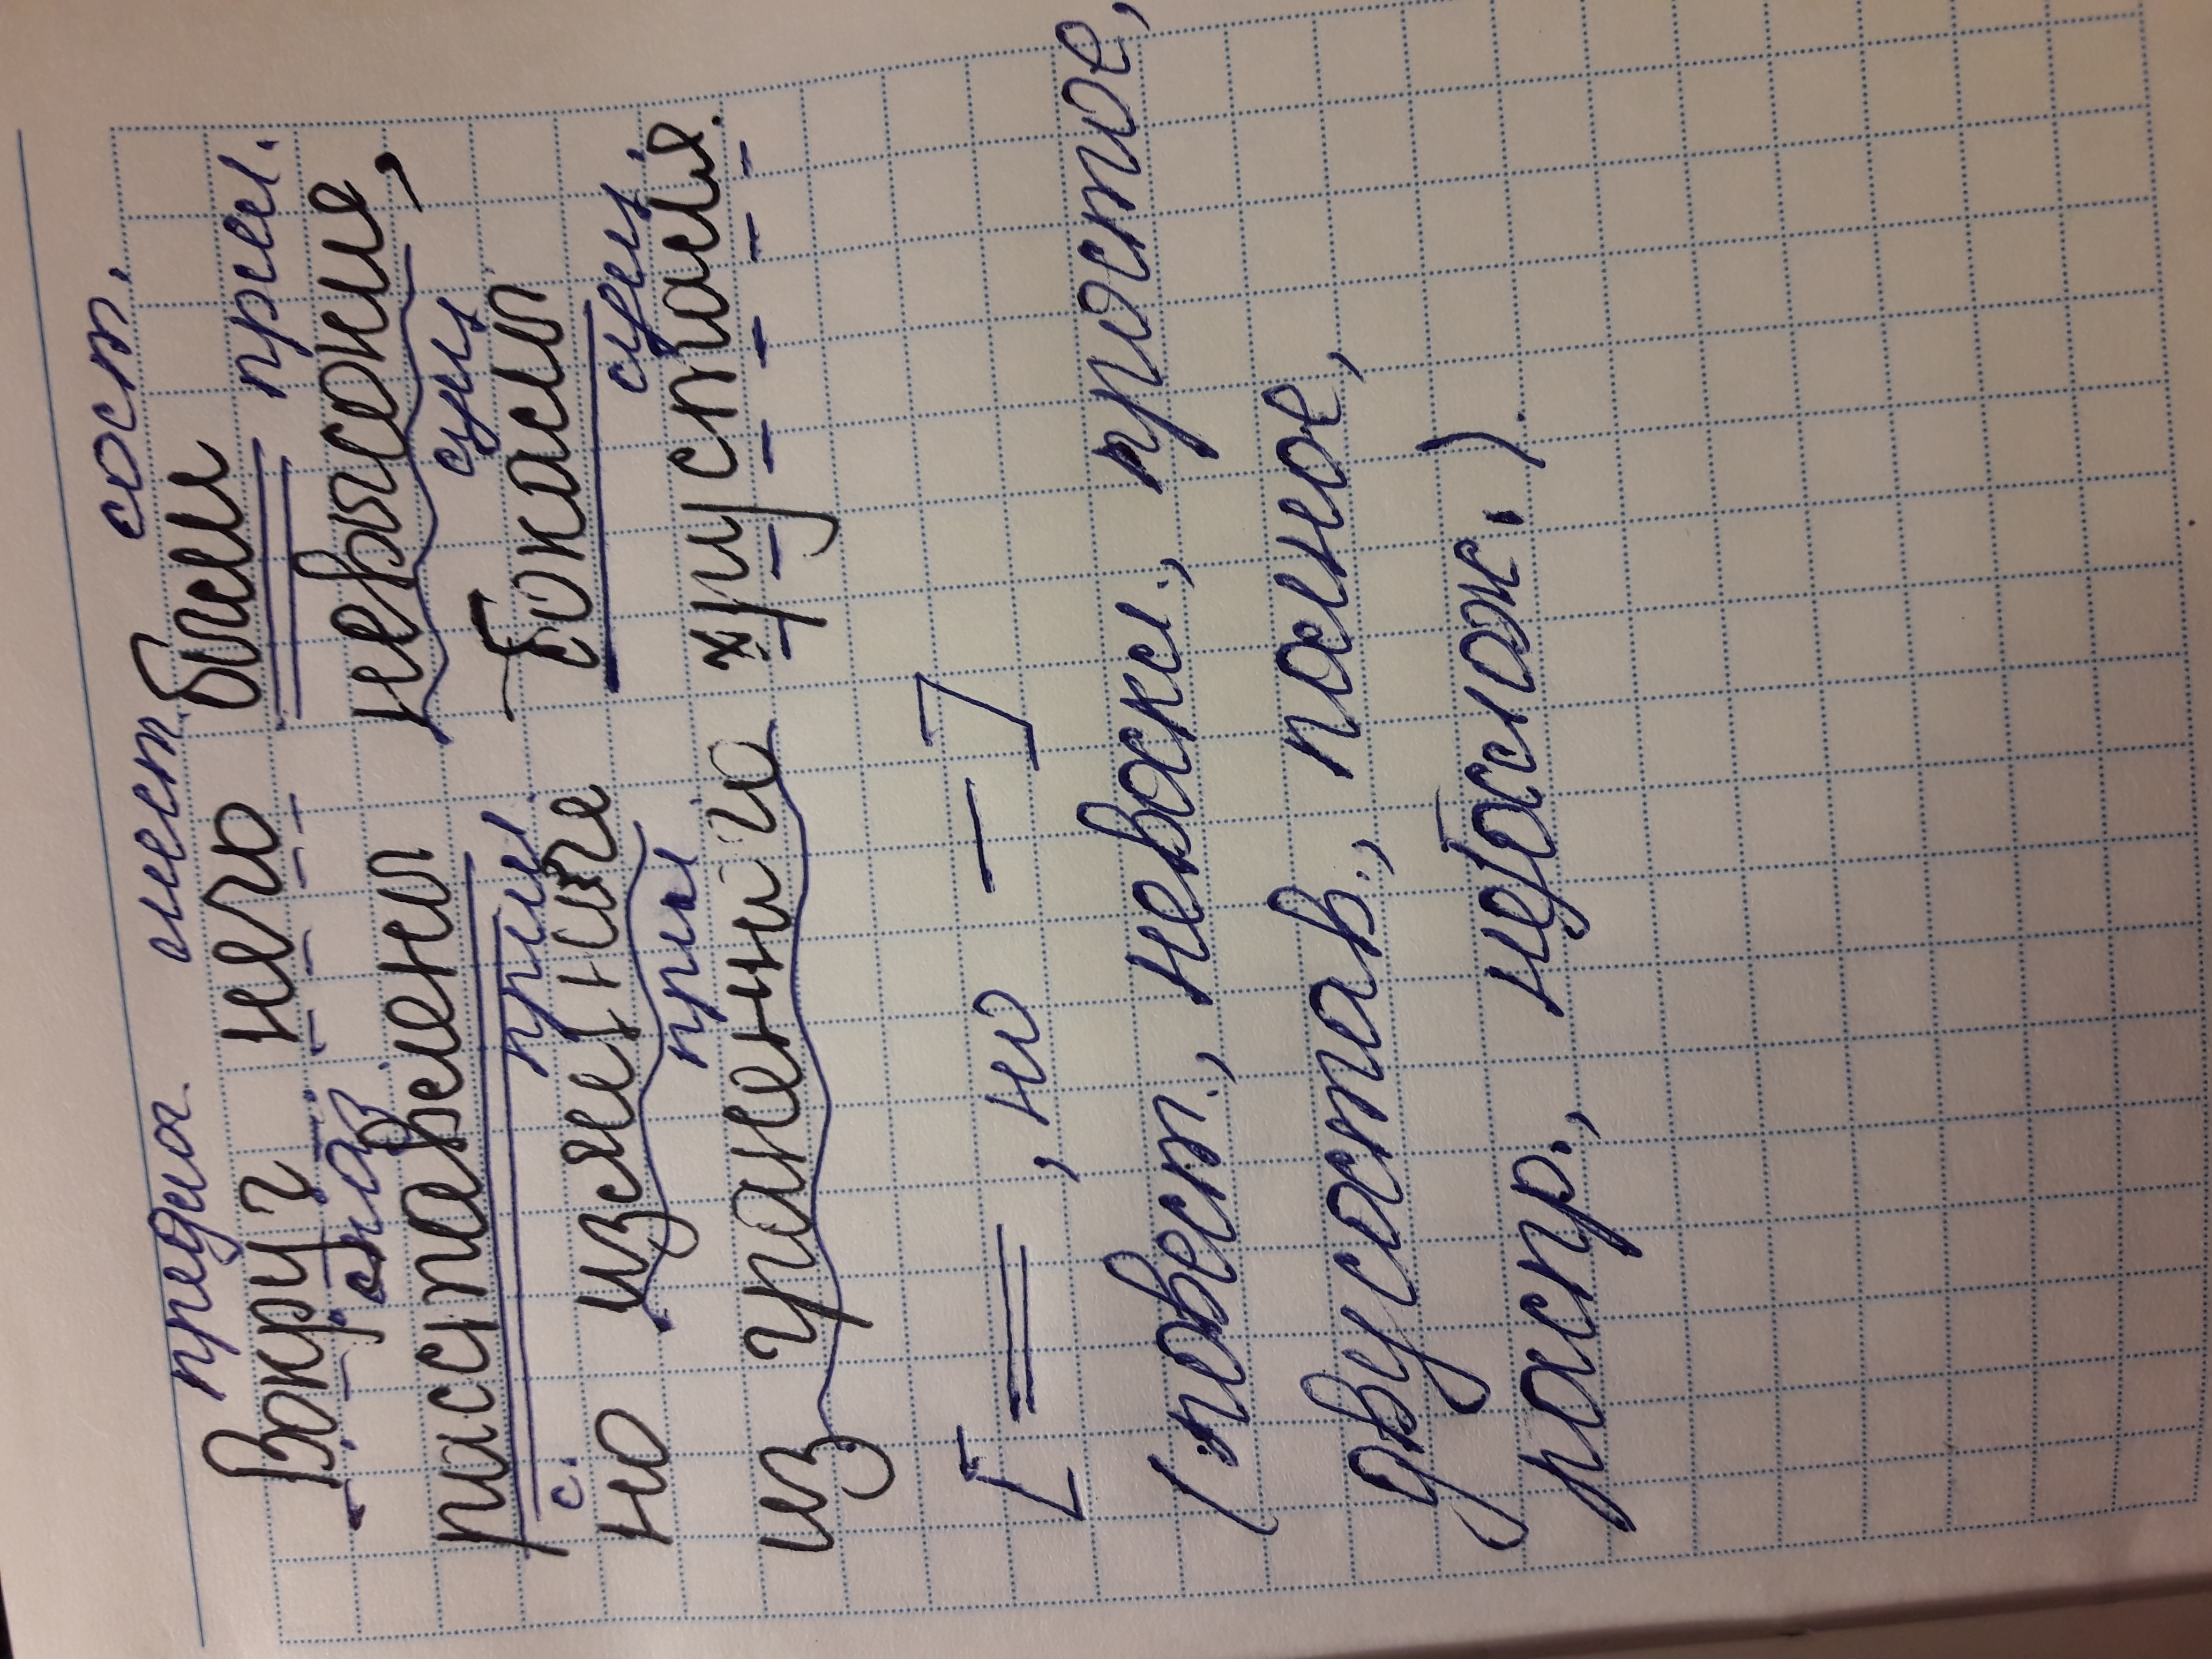 предлог мест. сост.
Вокруг него были
глаг. прил.
расставлены невысокие,
с. прил сущ
но изящные бокалы
прил сущ
из граненного хрусталя.
[ ═ , но — ]
(повест., невоскл., простое,
двусостав., полное,
распр., неослож.).